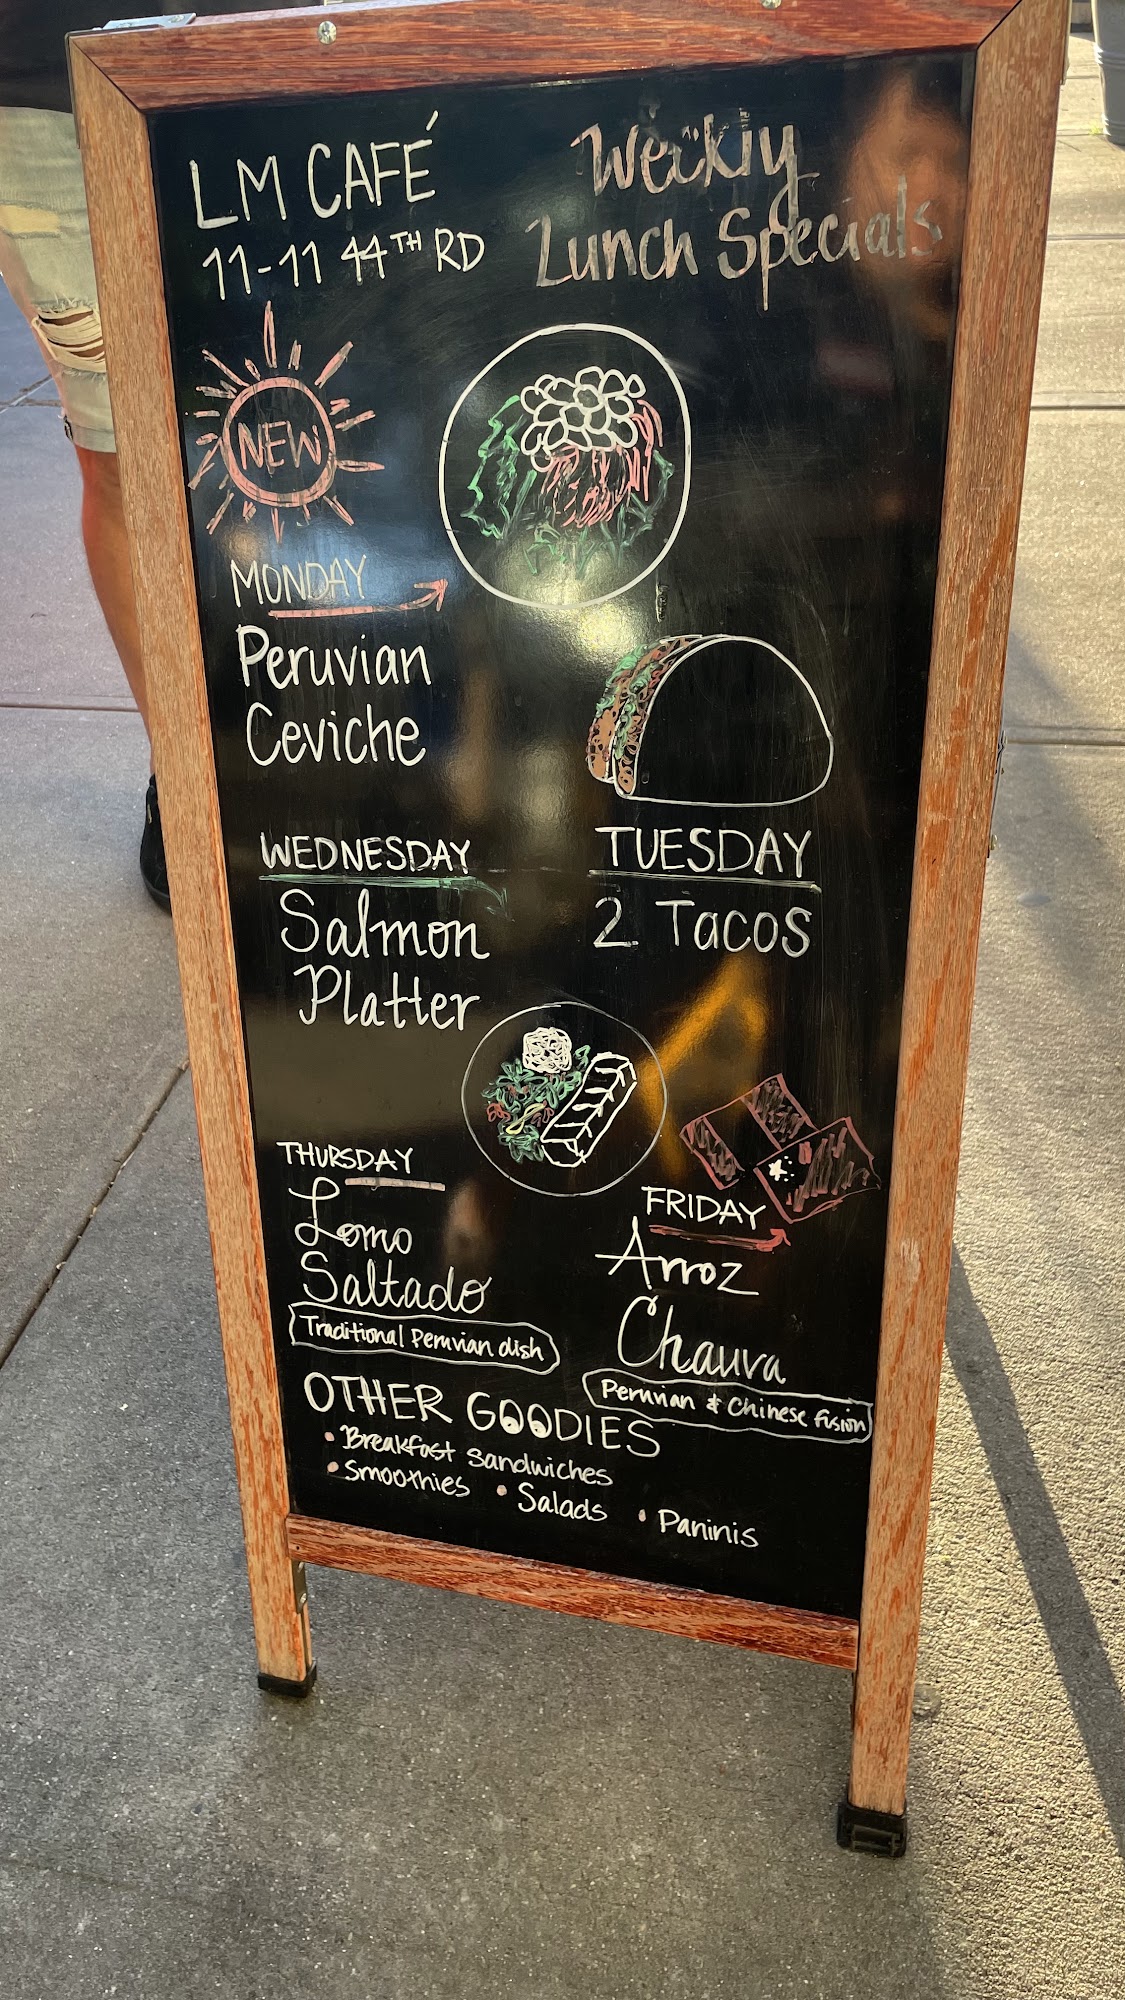 LM CAFÉ
11-11 44TH RD
Weekly
Lunch Specials
NEW
MONDAY
Peruvian
Ceviche
TUESDAY
2 Tacos
WEDNESDAY
Salmon
Platter
THURSDAY
Lomo
Saltado
Traditional Peruvian dish
FRIDAY
Arroz
Chauva
Peruvian & Chinese fusion
OTHER GOODIES
• Breakfast sandwiches
• Smoothies • Salads • Paninis